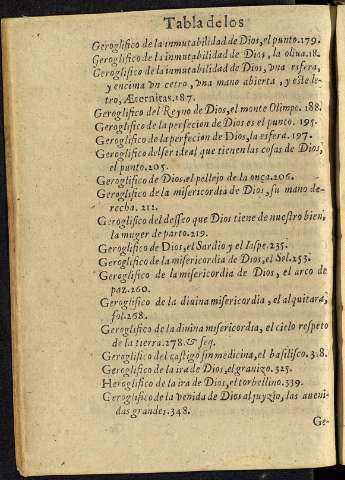 Tabla de los
Geroglifico de la inmutabilidad de Dios, el punto. 179.
Geroglifico de la inmutabilidad de Dios, la oliua. 18.
Geroglifico de la inmutabilidad de Dios, vna esfera,
y encima vn cetro, vna mano abierta, y este le-
tro, Æternitas. 187.
Geroglifico del Reyno de Dios, el monte Olimpo. 188.
Geroglifico de la perfecion de Dios es el punto. 195.
Geroglifico de la perfecion de Dios, la esfera. 197.
Geroglifico del ser ideal que tienen las cosas de Dios,
el punto. 205.
Geroglifico de Dios, el pellejo de la onça. 206.
Geroglifico de la misericordia de Dios, su mano de-
recha. 212.
Geroglifico del desseo que Dios tiene de nuestro bien,
la muger de parto. 219.
Geroglifico de Dios, el Sardio y el Iaspe. 235.
Geroglifico de la misericordia de Dios, el Sol. 253.
Geroglifico de la misericordia de Dios, el arco de
paz. 260.
Geroglifico de la diuina misericordia, el alquitara,
fol. 268.
Geroglifico de la diuina misericordia, el cielo respeto
de la tierra. 278. & seq.
Geroglifico del castigo sin medicina, el basilisco. 318.
Geroglifico de la ira de Dios, el granizo. 325.
Heroglifico de la ira de Dios, el torbellino. 339.
Geroglifico de la venida de Dios al juyzio, las aueni-
das grandes. 348.
Ge-